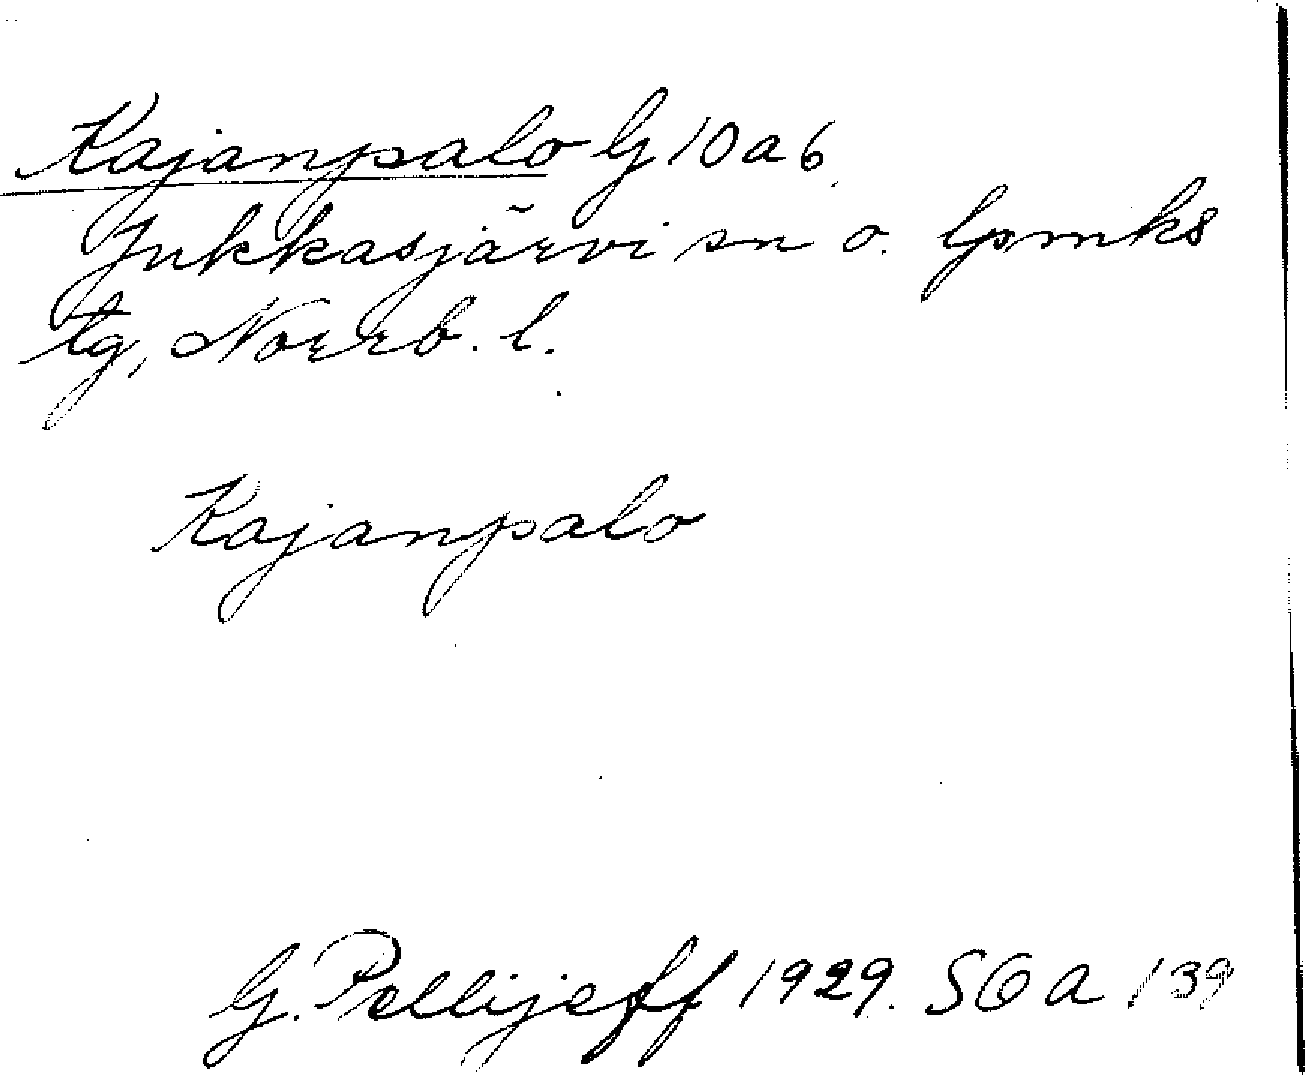 Kajanpalo G 10 a 6
Jukkasjärvi sn o. lpmks
tg, Norrb. l.
Kajanpalo
G. Pellijeff 1929. SOA 139